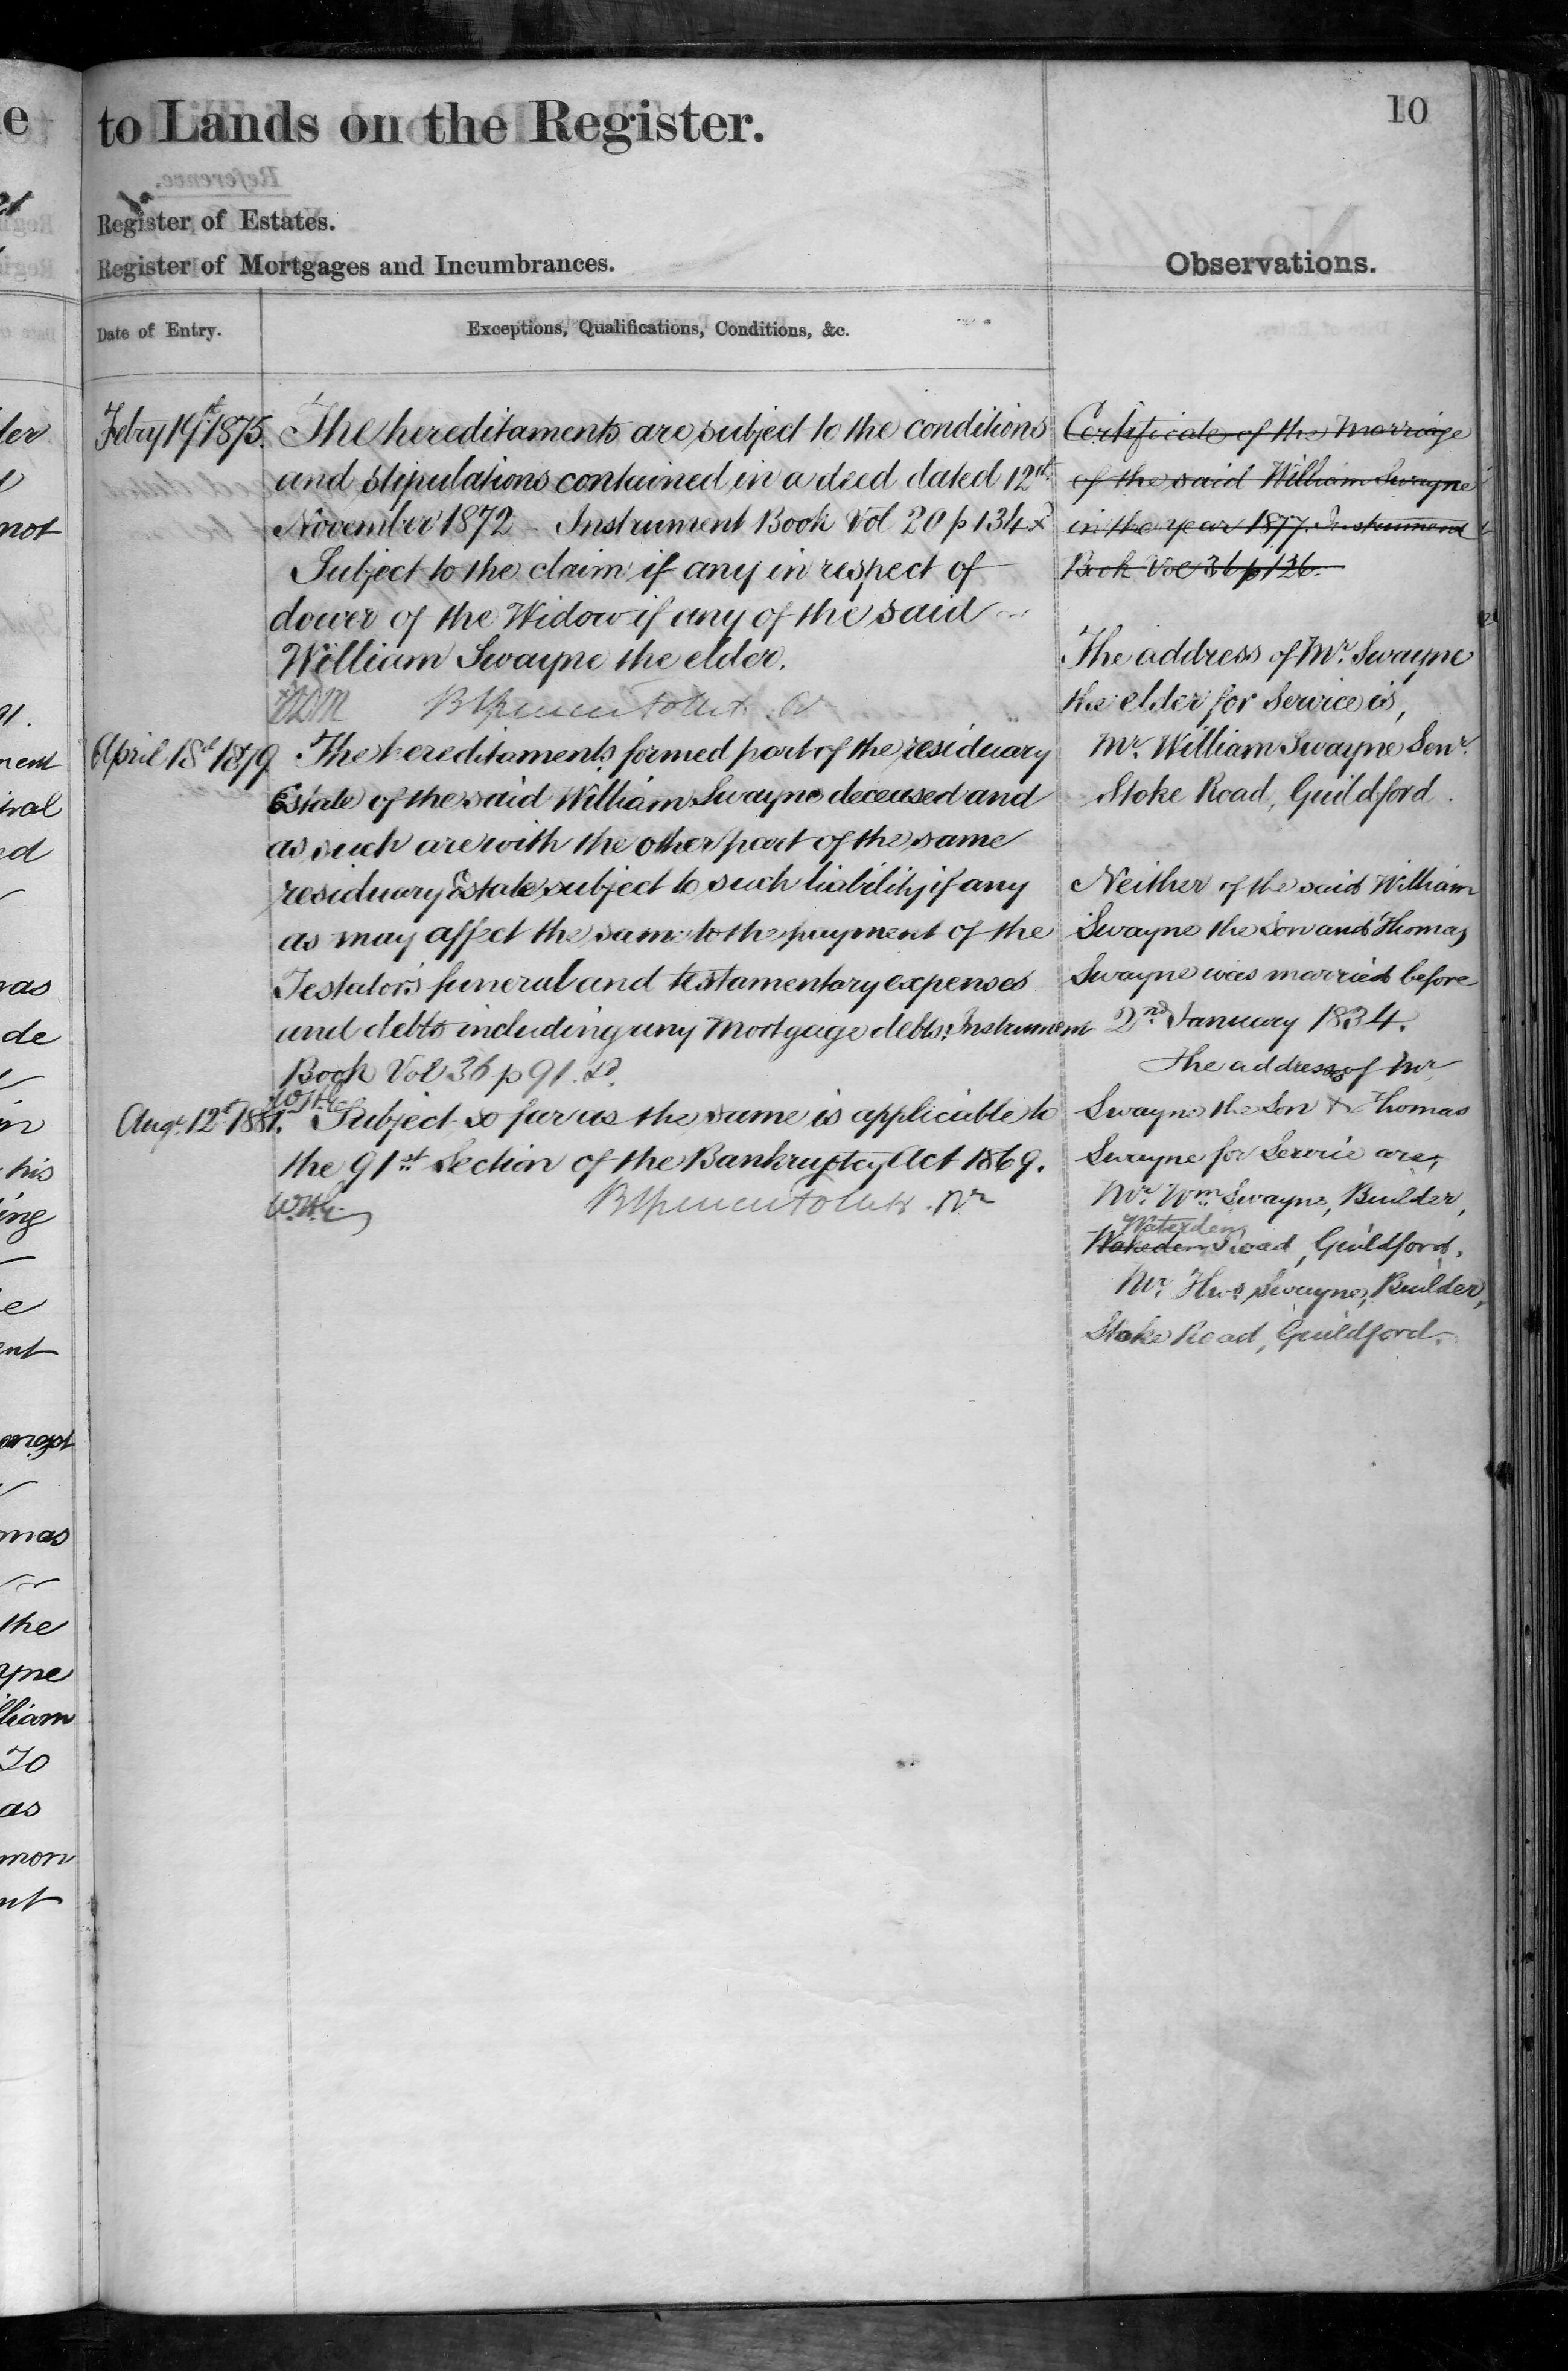 10
to Lands on the Register.
Register of Estates.
Register of Mortgages and Incumbrances.
Observations.
Date of Entry.
Exceptions, Qualifications, Conditions, &c.
Febry 19th 1875.
The hereditaments are subject to the conditions
and stipulations contained in a deed dated 12th
November 1872 - Instrument Book Vol 20 p 134
Subject to the claim if any in respect of
dower of the Widow if any of the said
William Swayne the elder.
April 18th 1879
The hereditaments formed part of the residuary
Estate of the said William Swayne deceased and
as such are with the other part of the same
residuary Estate subject to such liability if any
as may affect the same to the payment of the
Testator's funeral and testamentary expenses
and debts including any Mortgage debts. Instrument
Book Vol 36 p 91.
Augt. 12th 1881.
Subject so far as the same is applicable to
the 91st Section of the Bankruptcy Act 1869.
Certificate of the Marriage
of the said William Swayne
in the year 1877. Instrument
Book Vol 36 p 126.
The address of Mr. Swayne
the elder for Service is,
Mr. William Swayne Senr.
Stoke Road, Guildford.
Neither of the said William
Swayne the Son and Thomas
Swayne was married before
2nd January 1834.
The address of Mr
Swayne the Son & Thomas
Swayne for Service are,
Mr. Wm. Swayne, Builder,
Waterden
Road, Guildford.
Mr. Thos Swayne, Builder,
Stoke Road, Guildford.